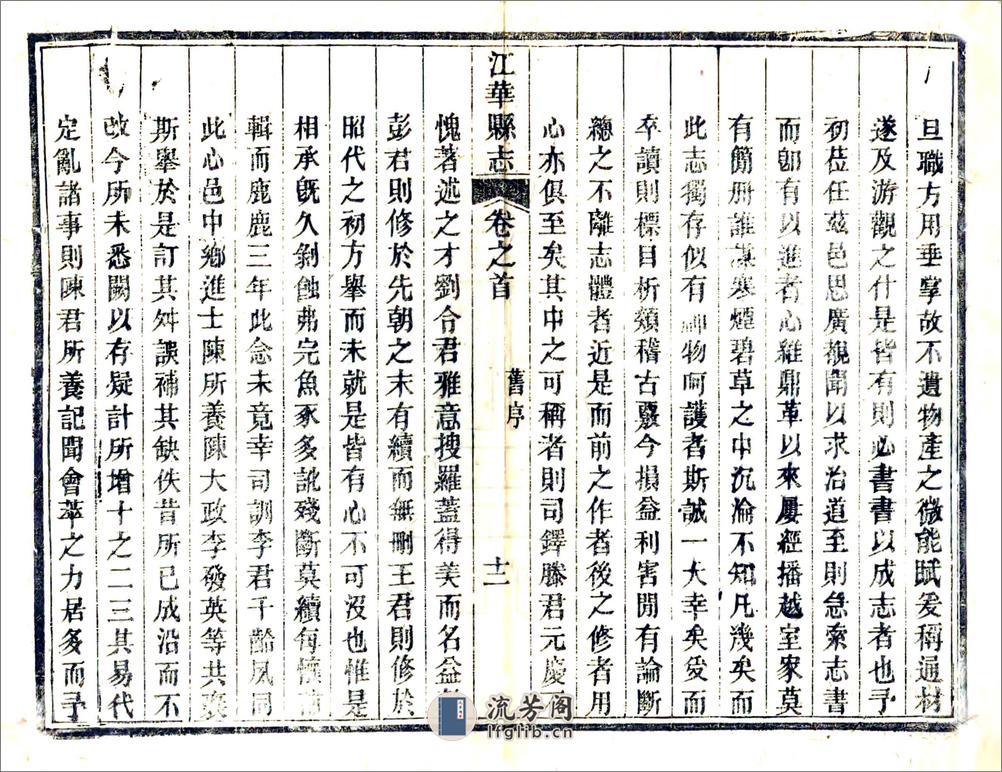 旦職方用垂掌故不遺物產之微能賦爰稱通材
遂及游觀之什是皆有則必書書以成志者也予
初莅任茲邑思廣覩聞以求治道至則急索志書
而卽有以進者心維鼎革以來屢經播越室家莫
有簡册誰謀寒煙碧草之中沉淪不知凡幾矣而
此志獨存似有神物呵護者斯誠一大幸矣爰而
卒讀則標目析纇稽古覈今損益利害間有論斷
總之不離志體者近是而前之作者後之修者用
心亦俱至矣其中之可稱者則司鐸滕君元慶
江華縣志 卷之首 舊序 十二
愧著述之才劉合君雅意搜羅蓋得美而名益
彭君則修於先朝之末有續而無刪王君則修於
昭代之初方舉而未就是皆有心不可没也惟是
相承旣久剝蝕弗完魚豕多訛殘斷莫續每懷
輯而鹿鹿三年此念未竟幸司訓李君千齡夙同
此心邑中鄉進士陳所養陳大政李發英等共襄
斯舉於是訂其舛誤補其缺佚昔所已成沿而不
改今所未悉闕以存疑計所增十之二三其易代
定亂諸事則陳君所養記聞會萃之力居多而予
流芳阁
lfglib.cn